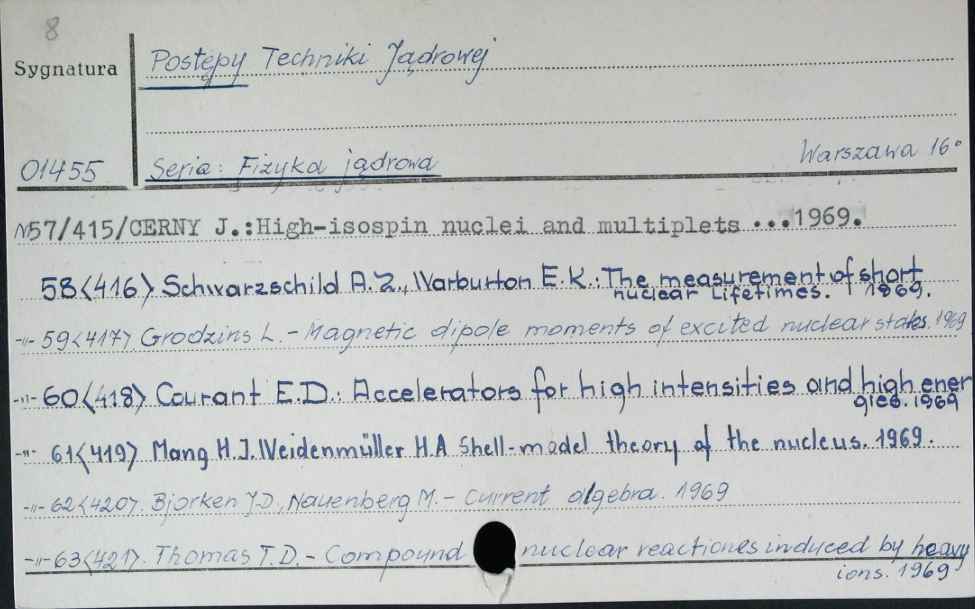 8
Sygnatura
Postępy Techniki Jądrowej
01455
Seria: Fizyka jądrowa
Warszawa 16°
N57/415/CERNY J.:High-isospin nuclei and multiplets ...1969.
58<416> Schwarzschild A.Z., Warburton E.K.: The measurement of short
nuclear Lifetimes. 1969.
-"- 59<417>. Grodzins L. - Magnetic dipole moments of excited nuclear states. 1969
-"- 60<418> Courant E.D.: Accelerators for high intensities and high ener
gies. 1969
-"- 61<419> Mang H.J. Weidenmüller H.A Shell-model theory of the nucleus. 1969.
-"- 62<420>. Bjorken J.D., Nauenberg M. - Current algebra. 1969
-"- 63<421>. Thomas T.D. - Compound nuclear reactiones induced by heavy
ions. 1969